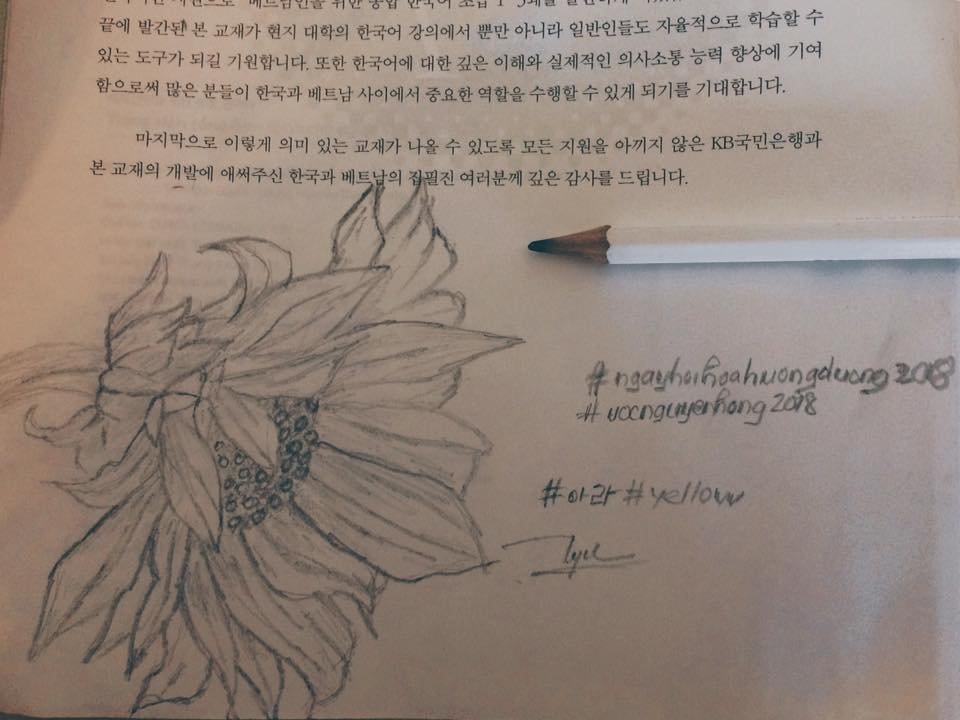 "베트남인을 위한 종합 한국어 초급 1
끝에 발간된 본 교재가 현지 대학의 한국어 강의에서 뿐만 아니라 일반인들도 자율적으로 학습할 수
있는 도구가 되길 기원합니다. 또한 한국어에 대한 깊은 이해와 실제적인 의사소통 능력 향상에 기여
함으로써 많은 분들이 한국과 베트남 사이에서 중요한 역할을 수행할 수 있게 되기를 기대합니다.
마지막으로 이렇게 의미 있는 교재가 나올 수 있도록 모든 지원을 아끼지 않은 KB국민은행과
본 교재의 개발에 애써주신 한국과 베트남의 집필진 여러분께 깊은 감사를 드립니다.
#ngayhoihoahuongduong2018
#uocnguyenhong2018
#아라 #yelloww